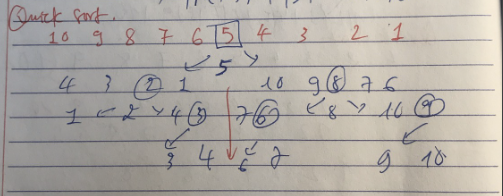 Quick sort.
10 9 8 7 6 5 4 3 2 1
5
4 3 2 1 10 9 8 7 6
1 2 4 3 7 6 8 10 9
3 4 6 7 9 10